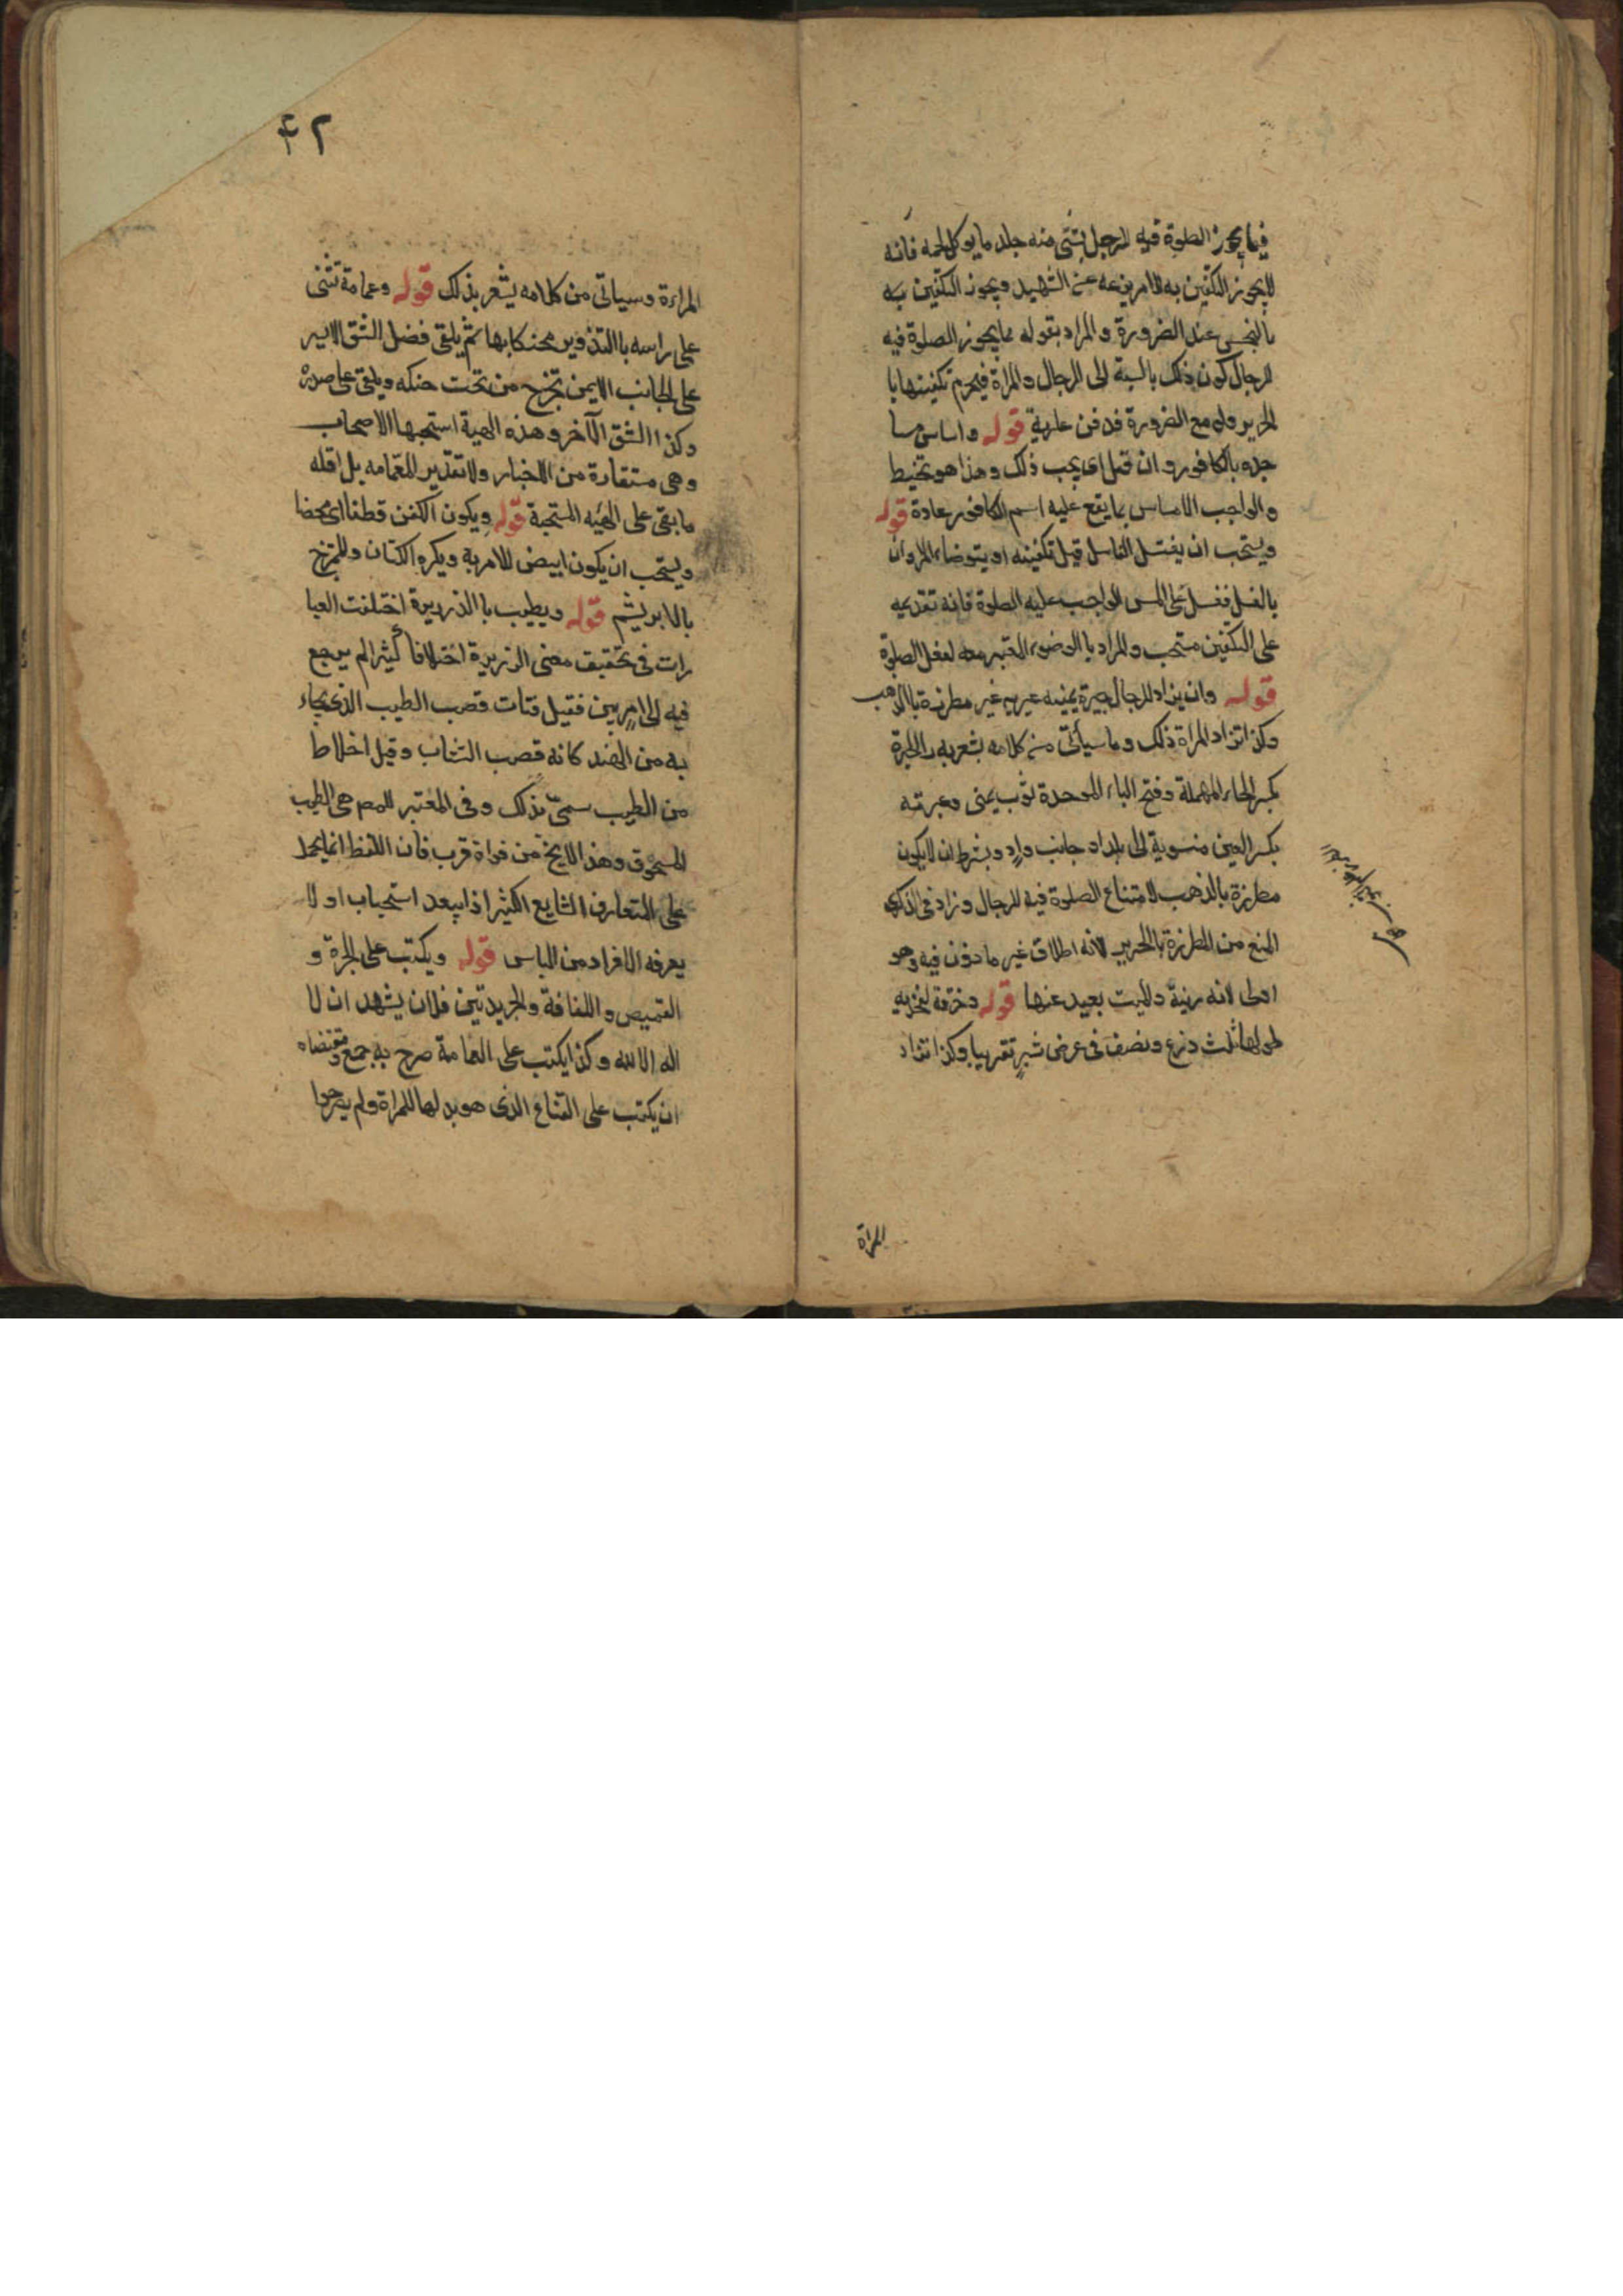 فيما يجوز الصلوة فيه للرجل يستثنى منه جلد ما يوكل لحمه فانه
لا يجوز التكفين به للامر بنزعه عن الشهيد ويجوز التكفين به
بالنجس عند الضرورة والمراد بقوله مما يجوز الصلوة فيه
للرجال كون ذلك بالنسبة الى الرجال والمراة فيحرم تكفينها با
لحرير ولو مع الضرورة فدفن عارية قوله وامساس مسا
جده بالكافور وان قل اى يجب ذلك وهذا هو تحنيط
والواجب الامساس بما يقع عليه اسم الكافور عادة قوله
ويستحب ان يغتسل الغاسل قبل تكفينه او يتوضاء المراد
بالغسل غسل المس الواجب عليه الصلوة فانه تقديمه
على التكفين مستحب والمراد بالوضوء المعتبر معه لفعل الصلوة
قوله وان يزاد للرجال حبرة يمنيه عبريه غير مطرزة بالذهب
وكذا تزاد المراة ذلك وما سيأتى من كلامه يشعر به والحبرة
بكسر الحاء المهملة وفتح الباء الموحدة ثوب يمنى وعبرته
بكسر العين منسوبة الى بلد او جانب واد ويشترط ان لا يكون
مطرزة بالذهب لامتناع الصلوة فيه للرجال وزاد فى الذكرى
المنع من المطرزة بالحرير لانه اطلاق غير ماذون فيه وهو
اولى لانه زينة والميت بعيد عنها قوله وخرقة لفخذيه
طولها ثلث ذرع ونصف فى عرض شبر تقريبا وكذا تزاد
المراة
٤٢
المراة وسياتى من كلامه يشعر بذلك قوله وعمامة تثنى
على راسه بالتدوير محنكا بها ثم يلقى فضل الشق الايسر
على الجانب الايمن تخرج من تحت حنكه ويلقى على صدره
وكذا الشق الآخر وهذه الهية استحبها الاصحاب
وهى مستفادة من الاخبار ولا تقدير للعمامه بل اقله
ما بقى على الهيه المستحبة قوله ويكون الكفن قطنا اى محضا
ويستحب ان يكون ابيض للامر به ويكره الكتان والممتزج
بالابريشم قوله ويطيب بالذريرة اختلفت العبا
رات فى تحقيق معنى الذريرة اختلافا كثيرا لم يرجع
فيه الى امر بين فقيل فتات قصب الطيب الذى يجاء
به من الهند كانه قصب النشاب وقيل اخلاط
من الطيب سمى بذلك وفى المعتبر للمص هى الطيب
المسحوق وهذا لا يخ من قرب فان اللفظ انما يحمل
على المتعارف الشايع الكثير اذ يبعد استحباب او لا
يعرفه الافراد من الناس قوله ويكتب على الحبرة و
القميص واللفافة والجريدتين فلان يشهد ان لا
اله الا الله وكذا يكتب على العمامة صرح به جمع ومقتضاه
ان يكتب على القناع الذى هو بدلها للمراة ولم يصرحوا